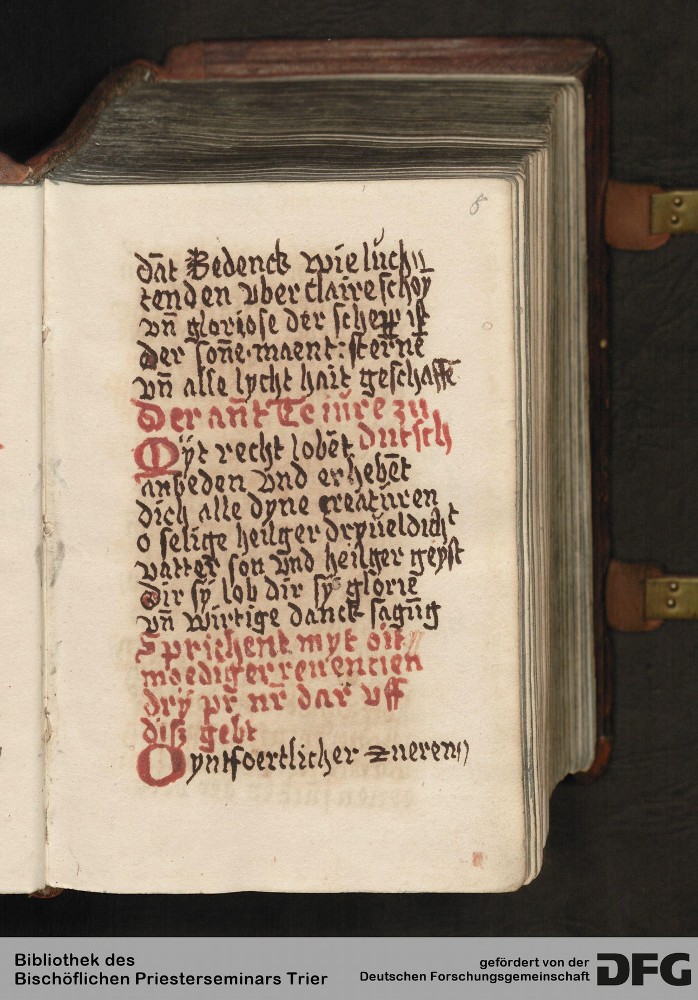 8
dāt Bedenck wie luch〃
tenden vber claire schoȳ
vn̄ gloriose der schepper ist
der son̄e · maent : sterne
vn̄ alle lycht hait geschaffē
Der an̄t Te iure zu
dutsch
Myt recht lobēt
anbeden vnd erhebēt
dich alle dyne creaturen
o selige heilger dryueldicht
vatter son vnd heilger geyst
Dir sy lob dir sy glorie
vn̄ wirtige danck sagūg
Sprichent myt oit〃
moediger reuerencien
dry pr̄ nr̄ dar vff
disz gebt
O yntfoertlicher zueren〃
Bibliothek des
Bischöflichen Priesterseminars Trier
gefördert von der
Deutschen Forschungsgemeinschaft
DFG